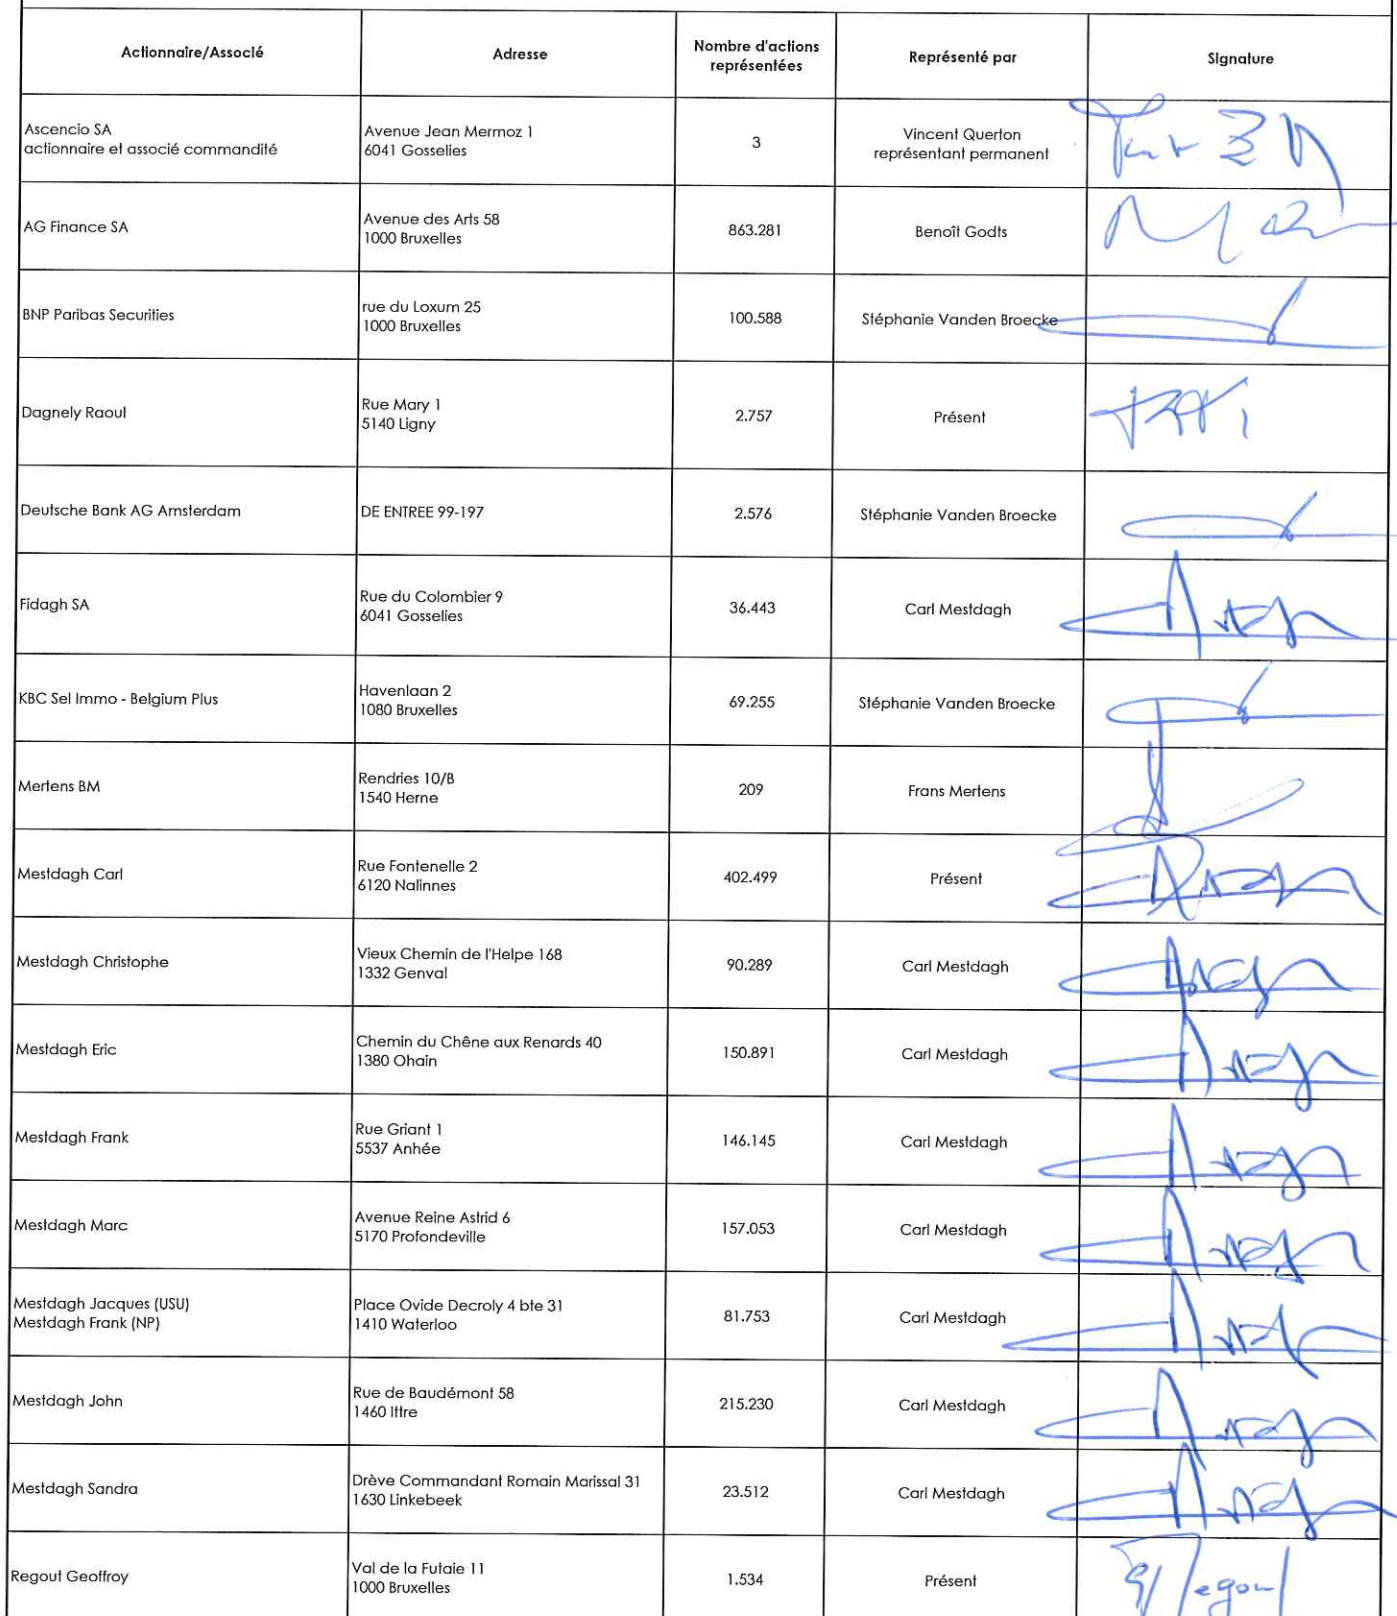 Actionnaire/Associé Adresse Nombre d'actions représentées Représenté par Signature
Ascencio SA
actionnaire et associé commandité
Avenue Jean Mermoz 1
6041 Gosselies
3
Vincent Querton
représentant permanent
AG Finance SA
Avenue des Arts 58
1000 Bruxelles
863.281
Benoît Godts
BNP Paribas Securities
rue du Loxum 25
1000 Bruxelles
100.588
Stéphanie Vanden Broecke
Dagnely Raoul
Rue Mary 1
5140 Ligny
2.757
Présent
Deutsche Bank AG Amsterdam
DE ENTREE 99-197
2.576
Stéphanie Vanden Broecke
Fidagh SA
Rue du Colombier 9
6041 Gosselies
36.443
Carl Mestdagh
KBC Sel Immo - Belgium Plus
Havenlaan 2
1080 Bruxelles
69.255
Stéphanie Vanden Broecke
Mertens BM
Rendries 10/B
1540 Herne
209
Frans Mertens
Mestdagh Carl
Rue Fontenelle 2
6120 Nalinnes
402.499
Présent
Mestdagh Christophe
Vieux Chemin de l'Helpe 168
1332 Genval
90.289
Carl Mestdagh
Mestdagh Eric
Chemin du Chêne aux Renards 40
1380 Ohain
150.891
Carl Mestdagh
Mestdagh Frank
Rue Griant 1
5537 Anhée
146.145
Carl Mestdagh
Mestdagh Marc
Avenue Reine Astrid 6
5170 Profondeville
157.053
Carl Mestdagh
Mestdagh Jacques (USU)
Mestdagh Frank (NP)
Place Ovide Decroly 4 bte 31
1410 Waterloo
81.753
Carl Mestdagh
Mestdagh John
Rue de Baudémont 58
1460 Ittre
215.230
Carl Mestdagh
Mestdagh Sandra
Drève Commandant Romain Marissal 31
1630 Linkebeek
23.512
Carl Mestdagh
Regout Geoffroy
Val de la Futaie 11
1000 Bruxelles
1.534
Présent